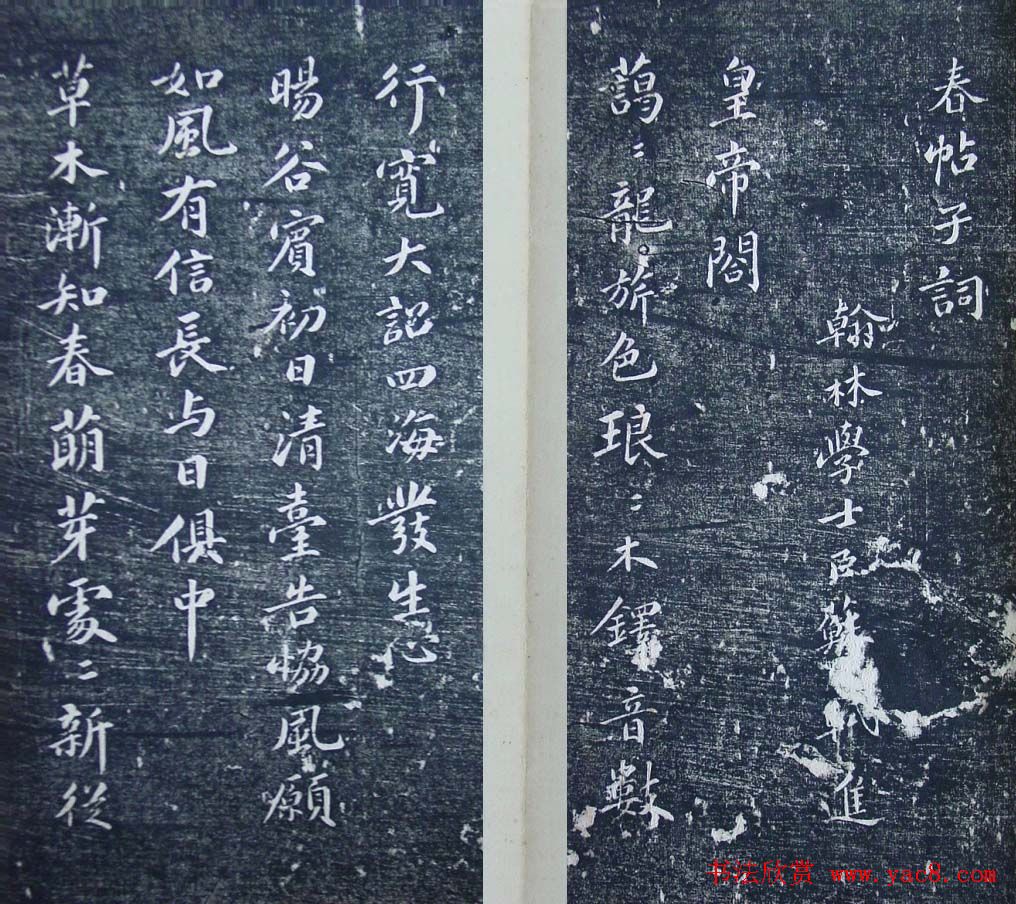 春帖子詞
翰林學士臣蘇軾進
皇帝閤
藹〻龍旂色琅〻木鐸音數
行寬大詔四海發生心
暘谷賓初日清臺告協風願
如風有信長与日俱中
草木漸知春萌芽處〻新從
书法欣赏 www.yac8.com